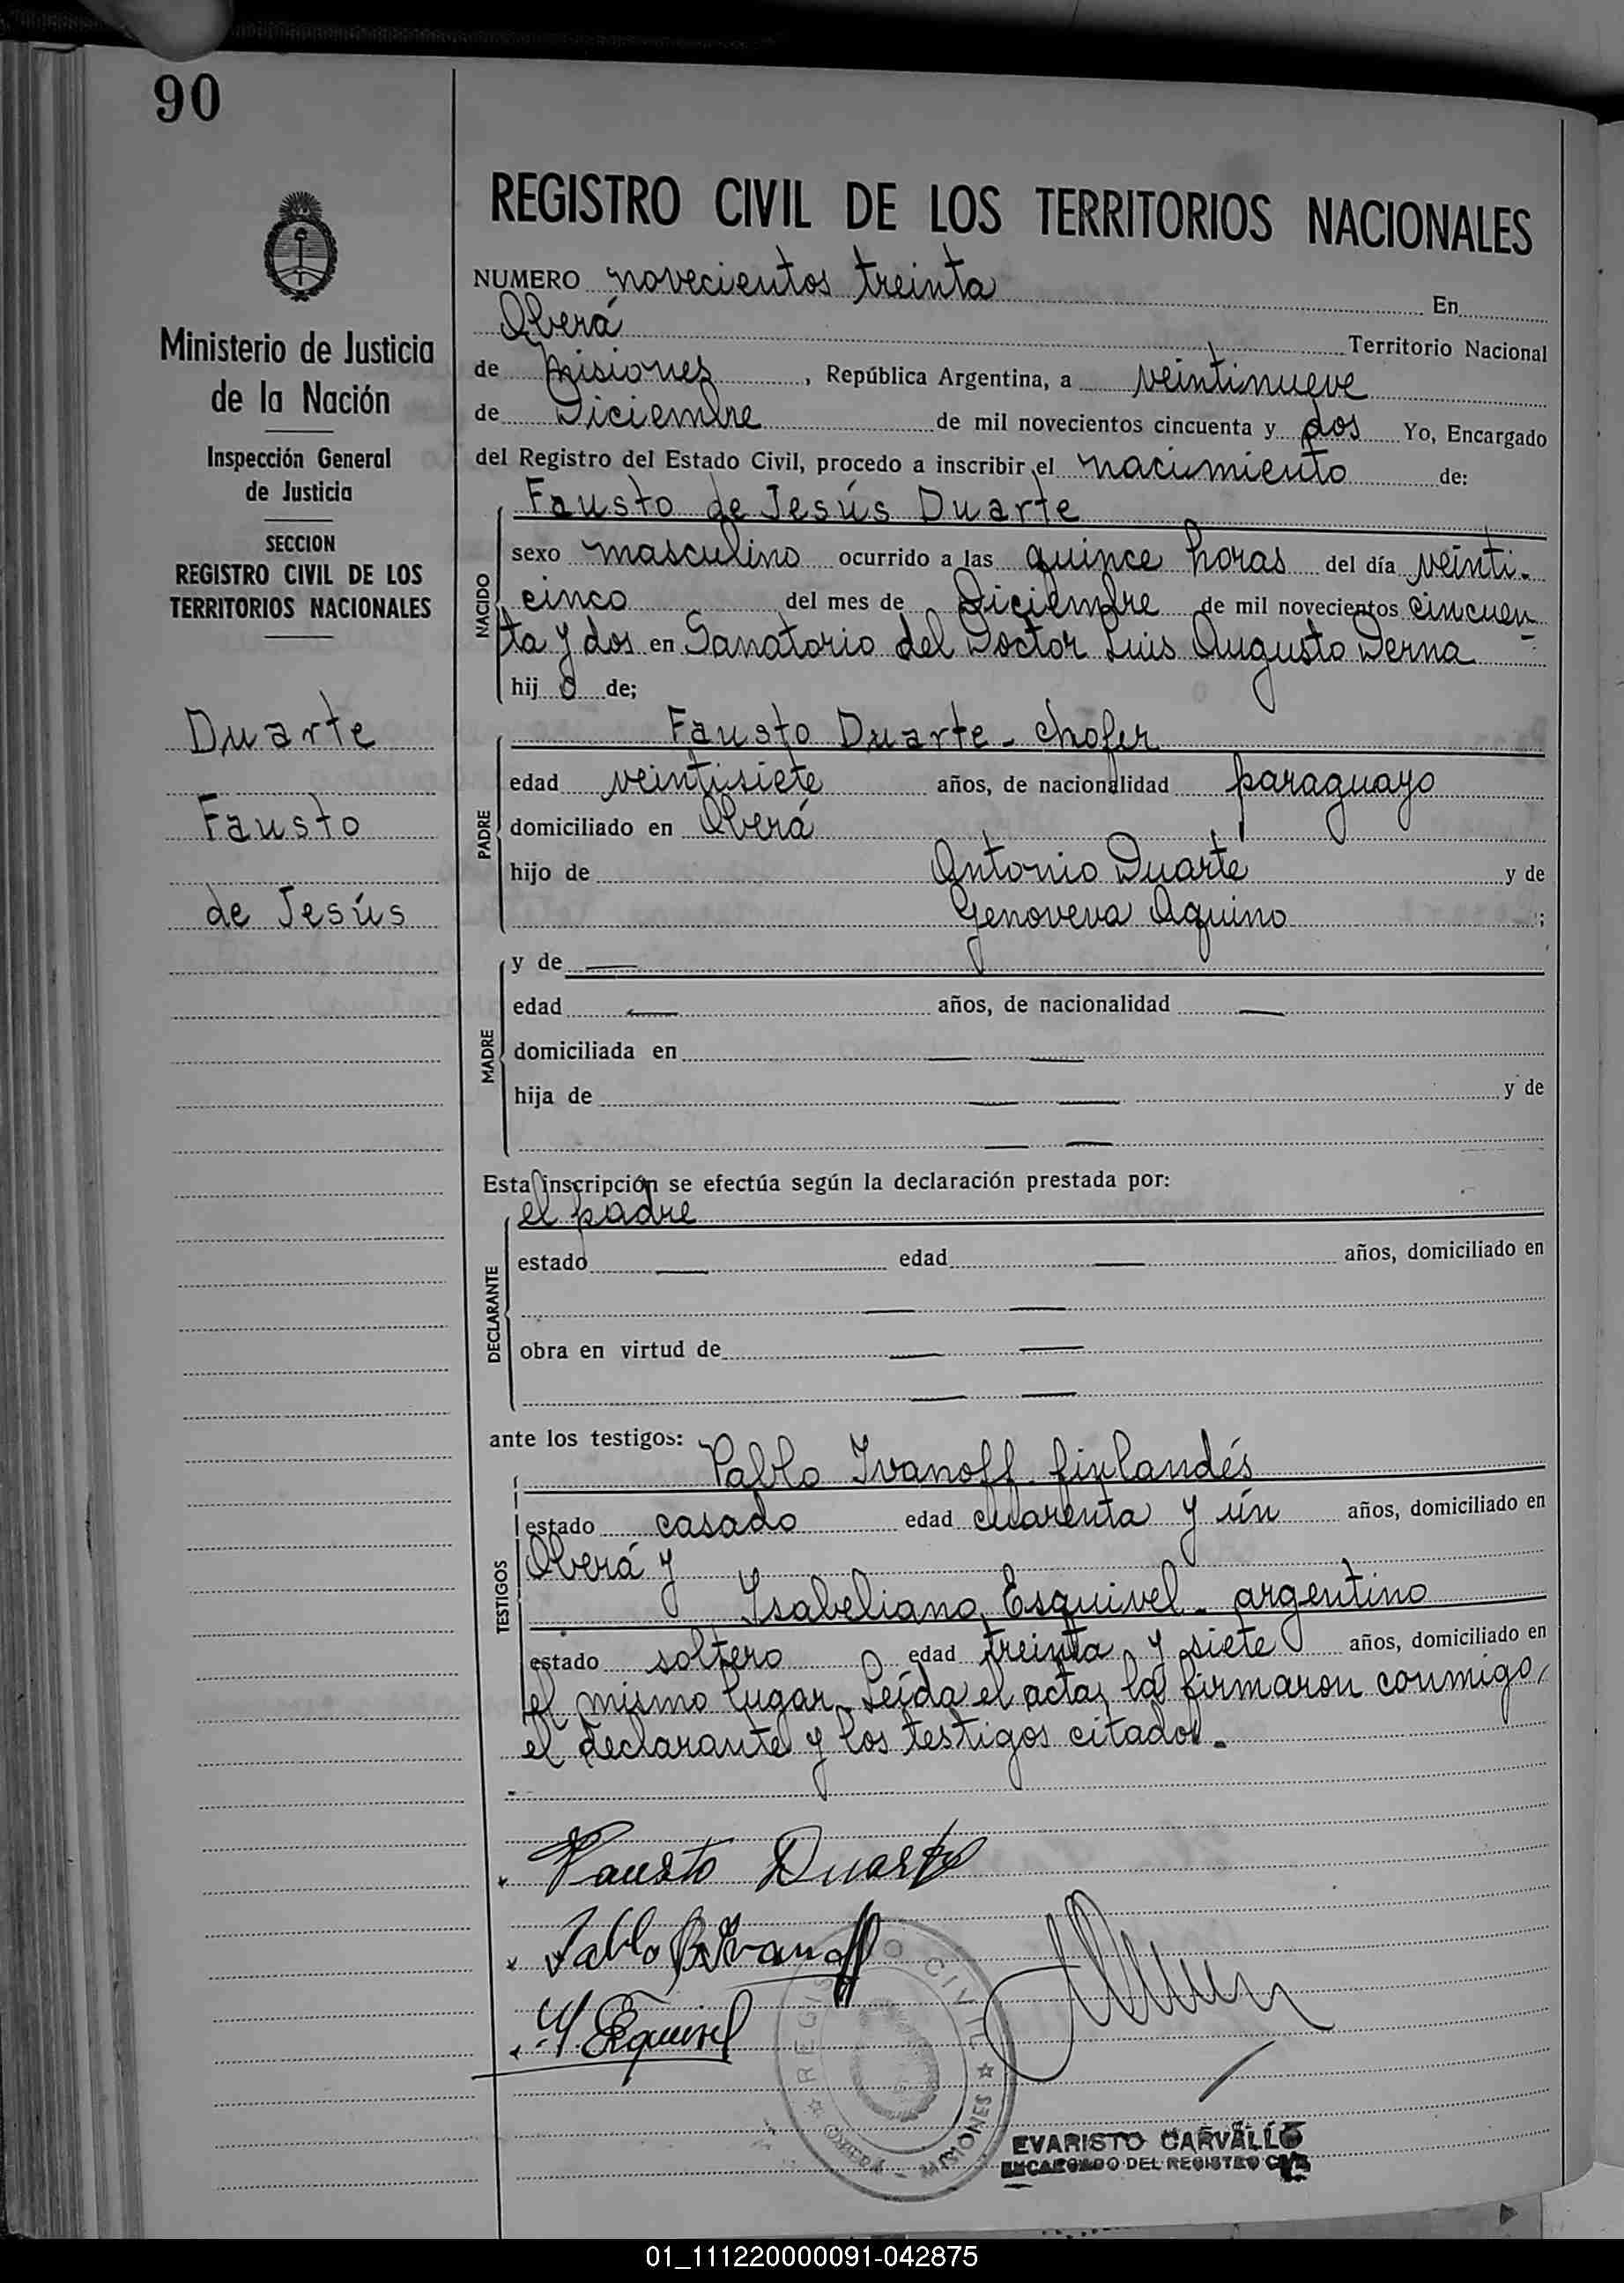 90
REGISTRO CIVIL DE LOS TERRITORIOS NACIONALES
NUMERO novecientos treinta En
Oberá Territorio Nacional
de Misiones, República Argentina, a veintinueve
de Diciembre de mil novecientos cincuenta y dos Yo, Encargado
del Registro del Estado Civil, procedo a inscribir el nacimiento de:
Ministerio de Justicia
de la Nación
Inspección General
de Justicia
SECCION
REGISTRO CIVIL DE LOS
TERRITORIOS NACIONALES
Duarte
Fausto
de Jesús
NACIDO
Fausto de Jesús Duarte
sexo masculino ocurrido a las quince horas del día veinti-
cinco del mes de Diciembre de mil novecientos cincuen-
ta y dos en Sanatorio del Doctor Luis Augusto Derna
hij o de;
PADRE
Fausto Duarte - chofer
edad veintisiete años, de nacionalidad paraguayo
domiciliado en Oberá
hijo de Antonio Duarte y de
Genoveva Aquino ;
MADRE
y de —
edad — años, de nacionalidad —
domiciliada en — —
hija de — — y de
— —
Esta inscripción se efectúa según la declaración prestada por:
el padre
DECLARANTE
estado — edad — años, domiciliado en
— —
obra en virtud de — —
— —
ante los testigos:
TESTIGOS
Pablo Ivanoff finlandés
estado casado edad cuarenta y ún años, domiciliado en
Oberá y
Ysabeliano Esquivel - argentino
estado soltero edad treinta y siete años, domiciliado en
el mismo lugar. Leída el acta, la firmaron conmigo,
el declarante y los testigos citados.-
Fausto Duarte
Pablo Ivanoff
Y. Esquivel
REGISTRO CIVIL
OBERÁ - MISIONES
EVARISTO CARVALLO
ENCARGADO DEL REGISTRO CIVIL
01_111220000091-042875